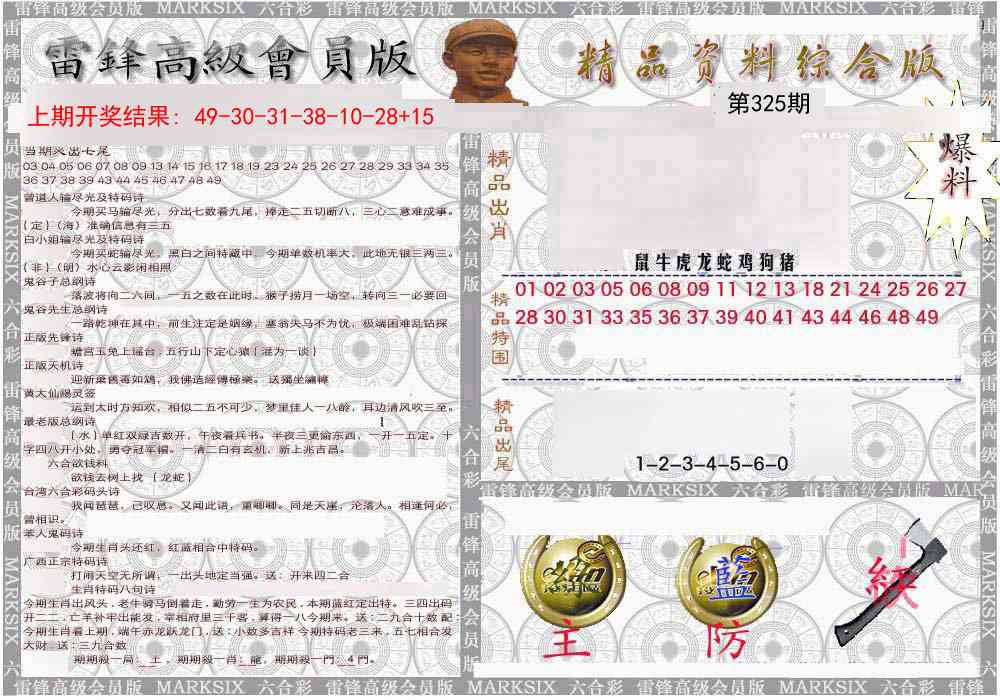 雷锋高级会员版 MARKSIX 六合彩 雷锋高级会员版 MARKSIX 六合彩 雷锋高级会员版 MARKSIX 六合彩 雷锋高级会员版
雷鋒高級會員版
精品资料综合版
上期开奖结果：49-30-31-38-10-28+15
第325期
爆料
当期奖出七尾
03 04 05 06 07 08 09 13 14 15 16 17 18 19 23 24 25 26 27 28 29 33 34 35
36 37 38 39 43 44 45 46 47 48 49
曾道人输尽光及特码诗
今期买马输尽光，分出七数看九尾，捧走二五切断八，三心二意难成事。
{定}（海）准确信息有三五
白小姐输尽光及特码诗
今期买蛇输尽光，黑白之间特藏中，今期单数机率大，此地无银三两三。
{非}（明）水心云影闲相照
鬼谷子总纲诗
落波将向二六间，一五之数在此时，猴子捞月一场空，转向三一必要回
鬼谷先生总纲诗
一路乾坤在其中，前生注定是姻缘，塞翁失马不为忧，极端困难乱钻探
正版先锋诗
蟾宫玉兔上瑶台，五行山下定心猿{混为一谈}
正版天机诗
迎新棄舊毒如鴆，我佛造經傳極樂。送獨坐
黄大仙赐灵签
运到太时方知欢，相似二五不可少，梦里佳人一八龄，耳边清风吹三至。
最老版总纲诗
{水}单红双绿吉数开，午夜看兵书。半夜三更偷东西，一开一五定。十
字四八开小处，勇夺冠军镅。一清二白有玄机，新上兆吉昌。
六合欲钱料
欲钱去树上找 {龙蛇}
台湾六合彩码头诗
我闻琶琶，已叹息。又闻此语，重唧唧。同是天崖，沦落人。相逢何必，
曾相识。
本人鬼码诗
今期生肖头还红，红蓝相合中特码。
广西正宗特码诗
打闹天空无所谓，一出头地定当强。送：开来四二合
生肖特码八句诗
今期生肖出风头，老牛骑马倒着走，勤劳一生为农民，本期蓝红定出特。三四出码
开二二，亡羊补牢出能发，宰相府里三千客，算得一八今期来。送：二九合十数 配：
今期生肖看上期，端午赤龙跃龙门，送：小数多吉祥 今期特码老三来，五七相合发
大财，送：三九合数
期期殺一局：土，期期殺一肖：龍，期期殺一門：4門。
精品出肖
鼠牛虎龙蛇鸡狗猪
精品特围
01 02 03 05 06 08 09 11 12 13 18 21 24 25 26 27
28 30 31 33 35 36 37 39 40 41 43 44 46 48 49
精品出尾
1-2-3-4-5-6-0
雷锋高级会员版 MARKSIX 六合彩 雷锋高级会员版 MARK
藍
綠
主
防
雷锋高级会员版 MARKSIX 六合彩 雷锋高级会员版 MARKSIX 六合彩 雷锋高级会员版 MARKSIX 六合彩 雷锋高级会员版